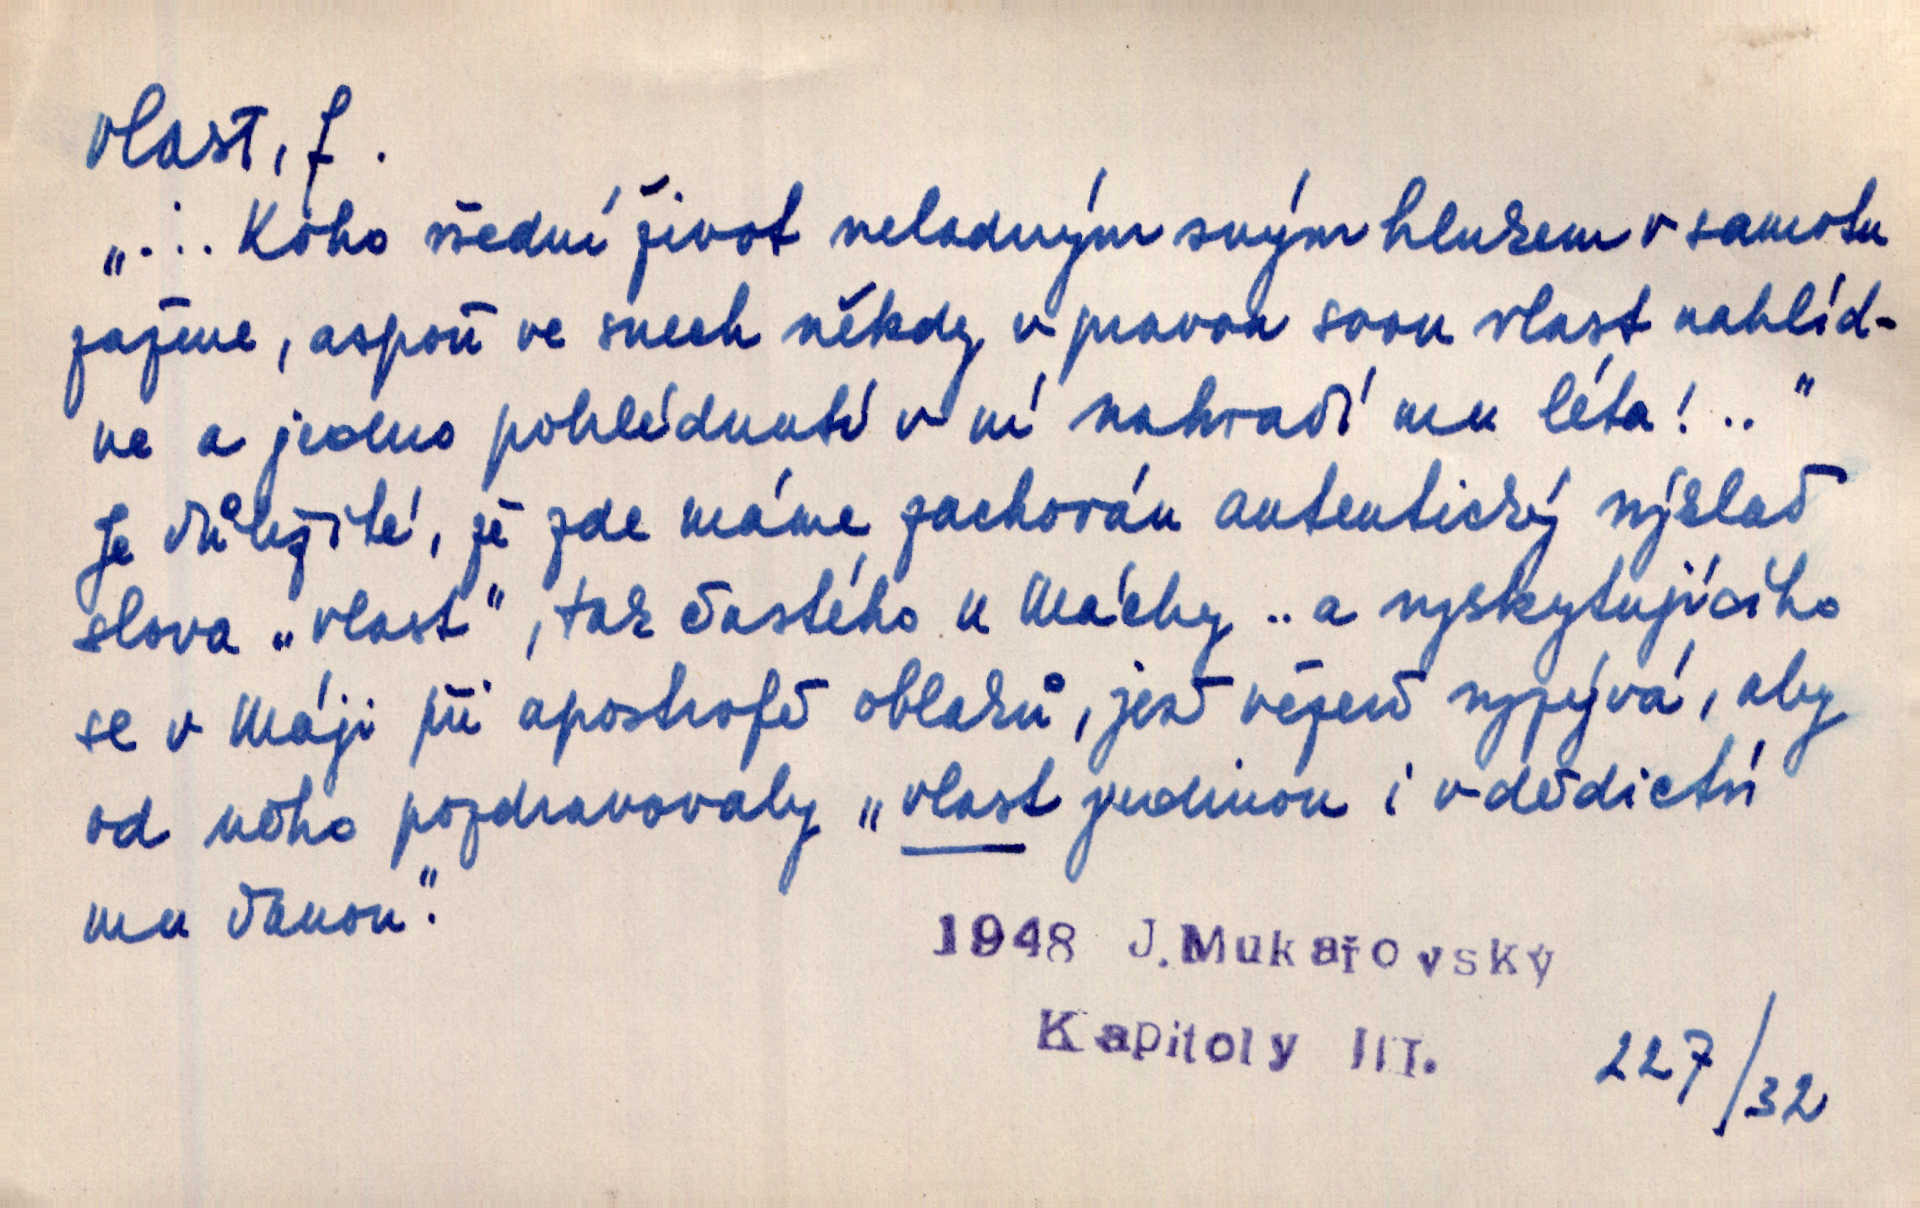 vlast, f.
„... Koho všední život neladným svým hlukem v samotu
zažene, aspoň ve snech někdy v pravou svou vlast nahlíd-
ne a jedno pohlédnutí v ní nahradí mu léta! .."
Je důležité, že zde máme zachován autentický výklad
slova „vlast", tak častého u Máchy .. a vyskytujícího
se v Máji při apostrofě oblaků, jež vězeň vyzývá, aby
od něho pozdravovaly „vlast jedinou i v dědictví
mu danou".
1948 J.Mukařovský
Kapitoly III.
227/32